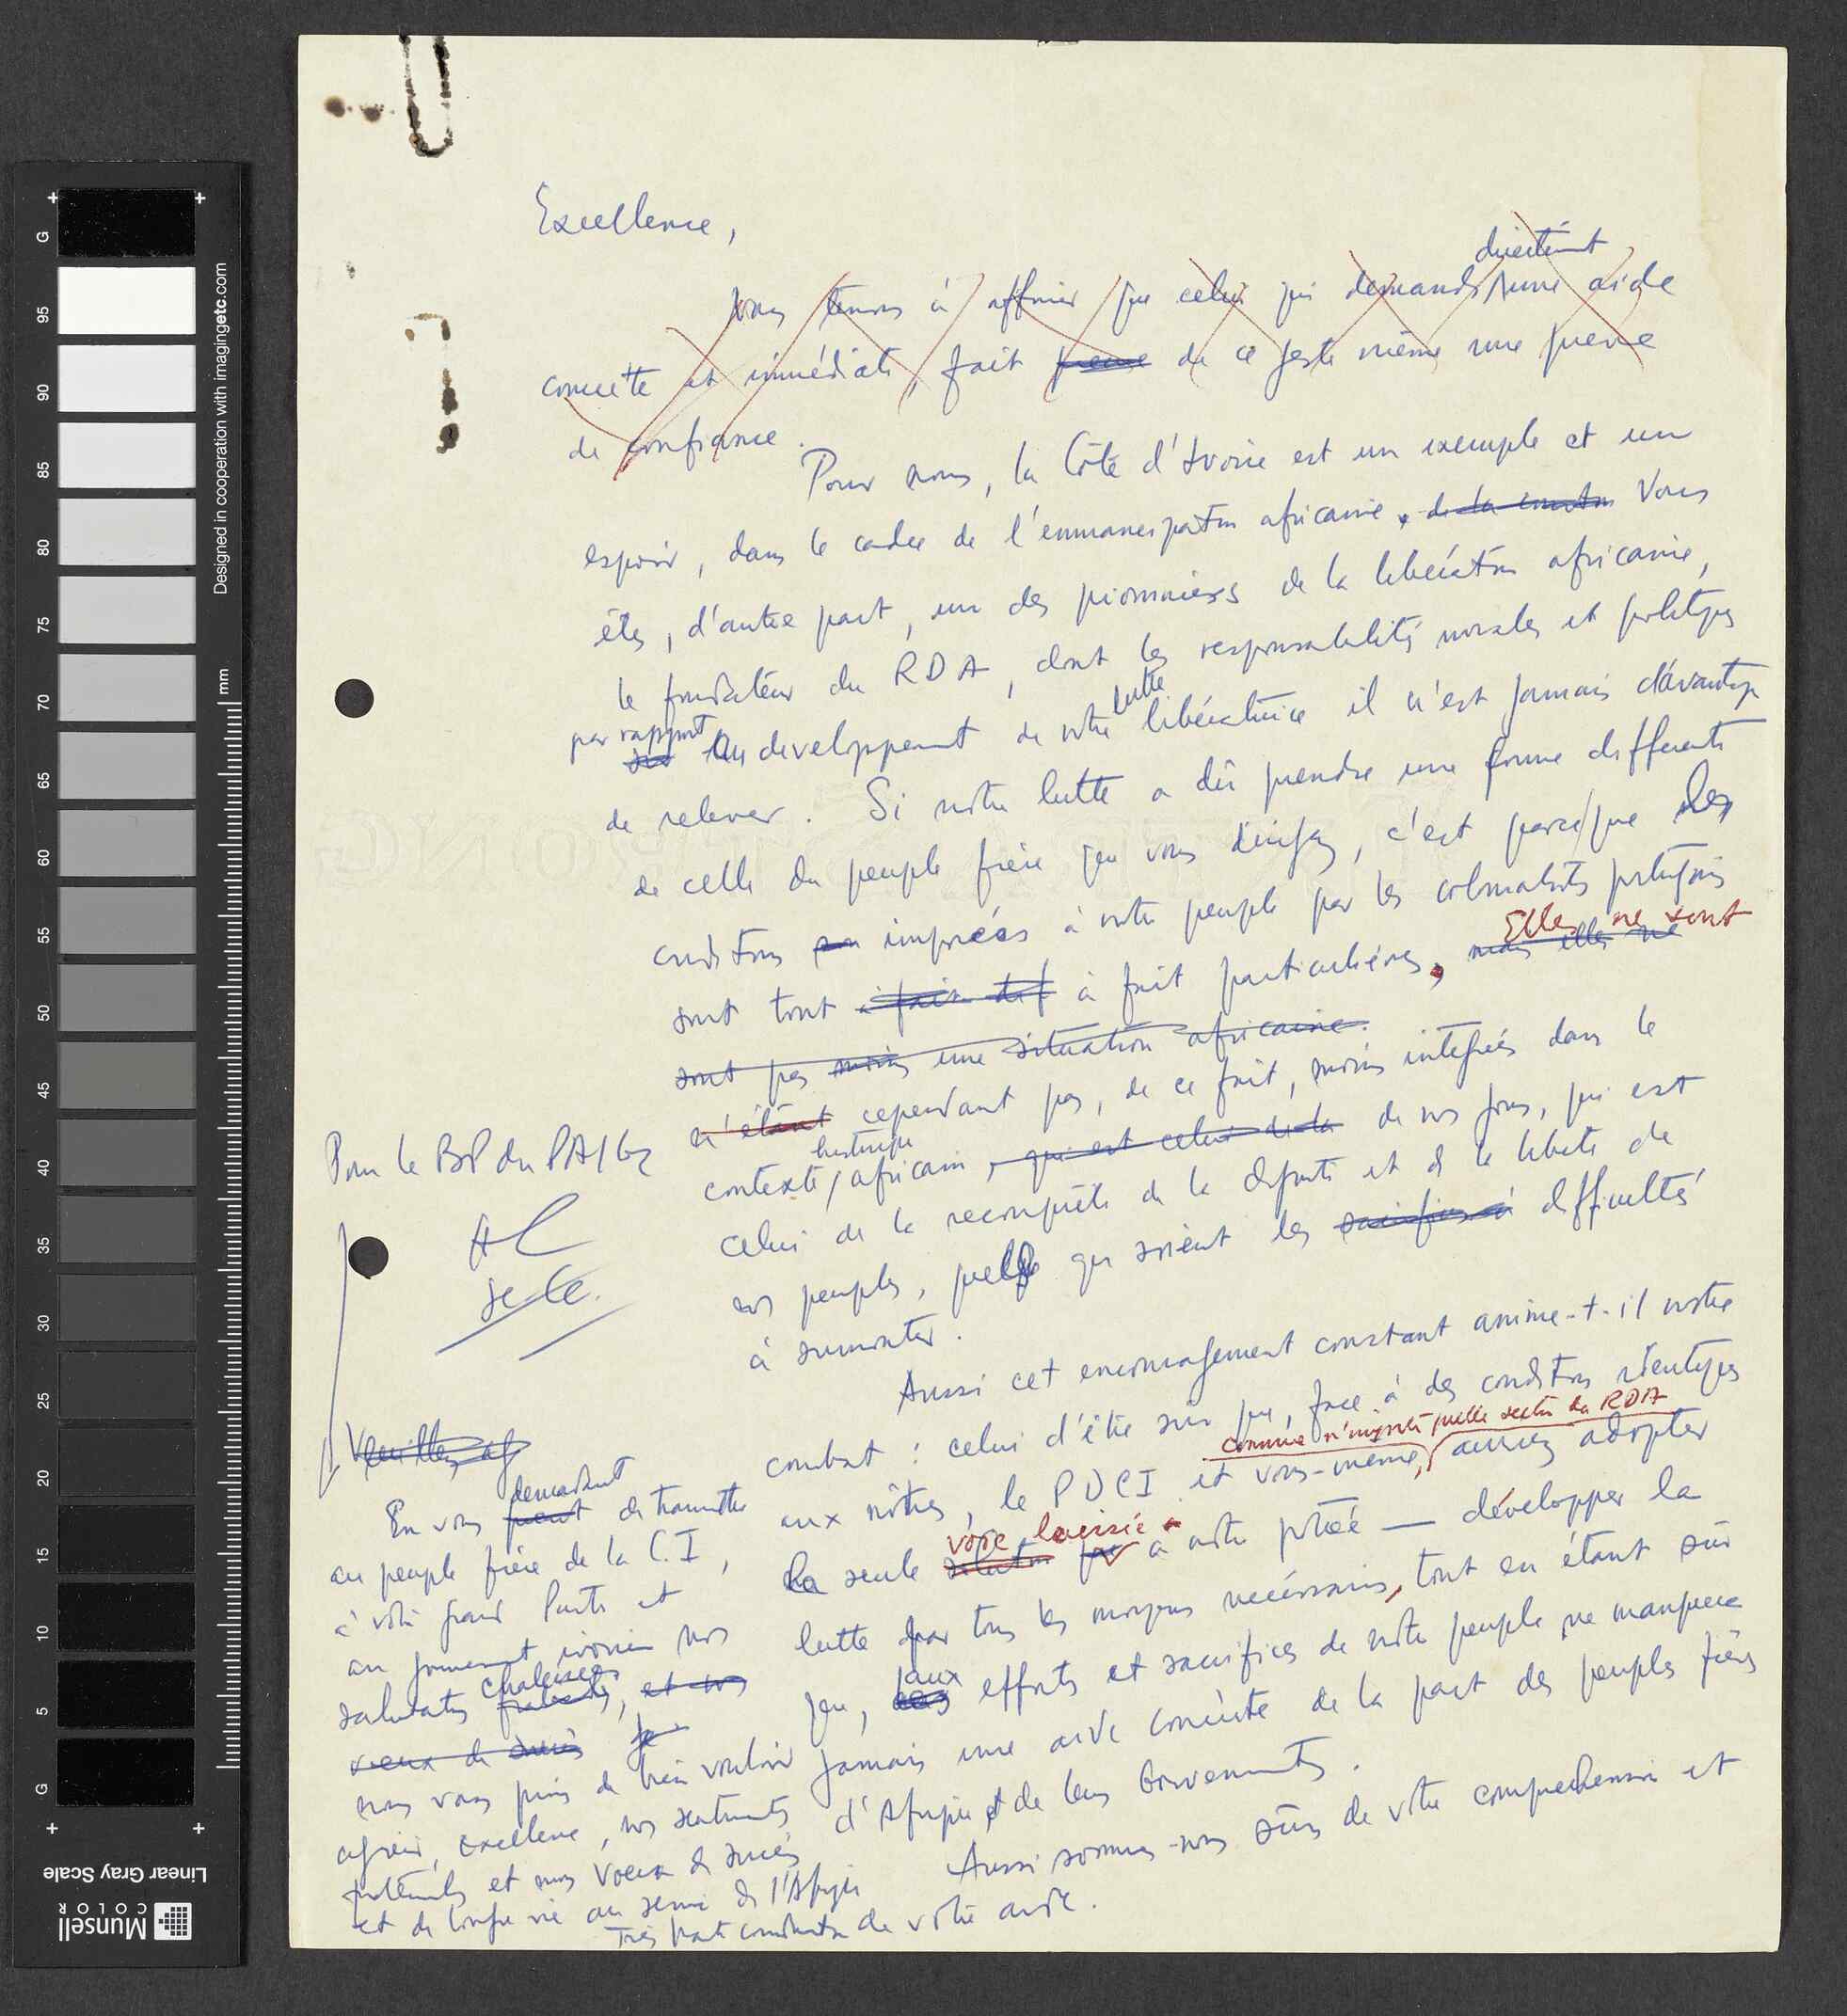 Excellence,
directement
Nous tenons à affirmer que celui qui demande une aide
concrète et immédiate, fait preuve de ce geste même une preuve
de confiance.
Pour nous, la Côte d'Ivoire est un exemple et un
espoir, dans le cadre de l'emmancipation africaine, de la Vous
êtes, d'autre part, un des pionniers de la libération africaine,
le fondateur du RDA, dont les responsabilités morales et politiques
par rapport au developpement de notre lutte libératrice il n'est jamais davantage
de relever. Si notre lutte a dû prendre une forme differente
de celle du peuple frère que vous dirigez, c'est parce que les
conditions imposées à notre peuple par les colonialistes portugais
Elles ne sont
sont tout à fait dif à fait particulières, mais elles ne
sont pas moins une situation africaine.
n'étant cependant pas, de ce fait, moins integrées dans le
contexte historique africain, qui est celui de la de nos jours, qui est
celui de la reconquête de la dignité et de la liberté de
nos peuples, quelles que soient les sacrifices à difficultés
à surmonter.
Aussi cet encouragement constant anime-t-il notre
combat : celui d'être sûr que, face à des conditions identiques
comme n'importe quelle section du RDA
aux nôtres, le PDCI et vous-même, auriez adopter
voie laissée
la seule solution à notre portée — développer la
lutte par tous les moyens nécessaires, tout en étant sûr
que, aux efforts et sacrifices de notre peuple ne manquera
jamais une aide concrète de la part des peuples frères
d'Afrique et de leurs Gouvernements.
Aussi sommes-nous sûrs de votre comprehension et
de votre aide.
Pour le BP du PAIGC
AC
Se. Ge.
Veuillez ag
En vous demandant de transmettre
au peuple frère de la C.I,
à votre grand Parti et
au gouvernement ivoirien nos
salutations chaleureuses fraternelles, et nos
vœux de succès
nous vous prions de bien vouloir
agréer, Excellence, nos sentiments
fraternels et nos voeux de succès
et de longue vie au service de l'Afrique
Très haute considération